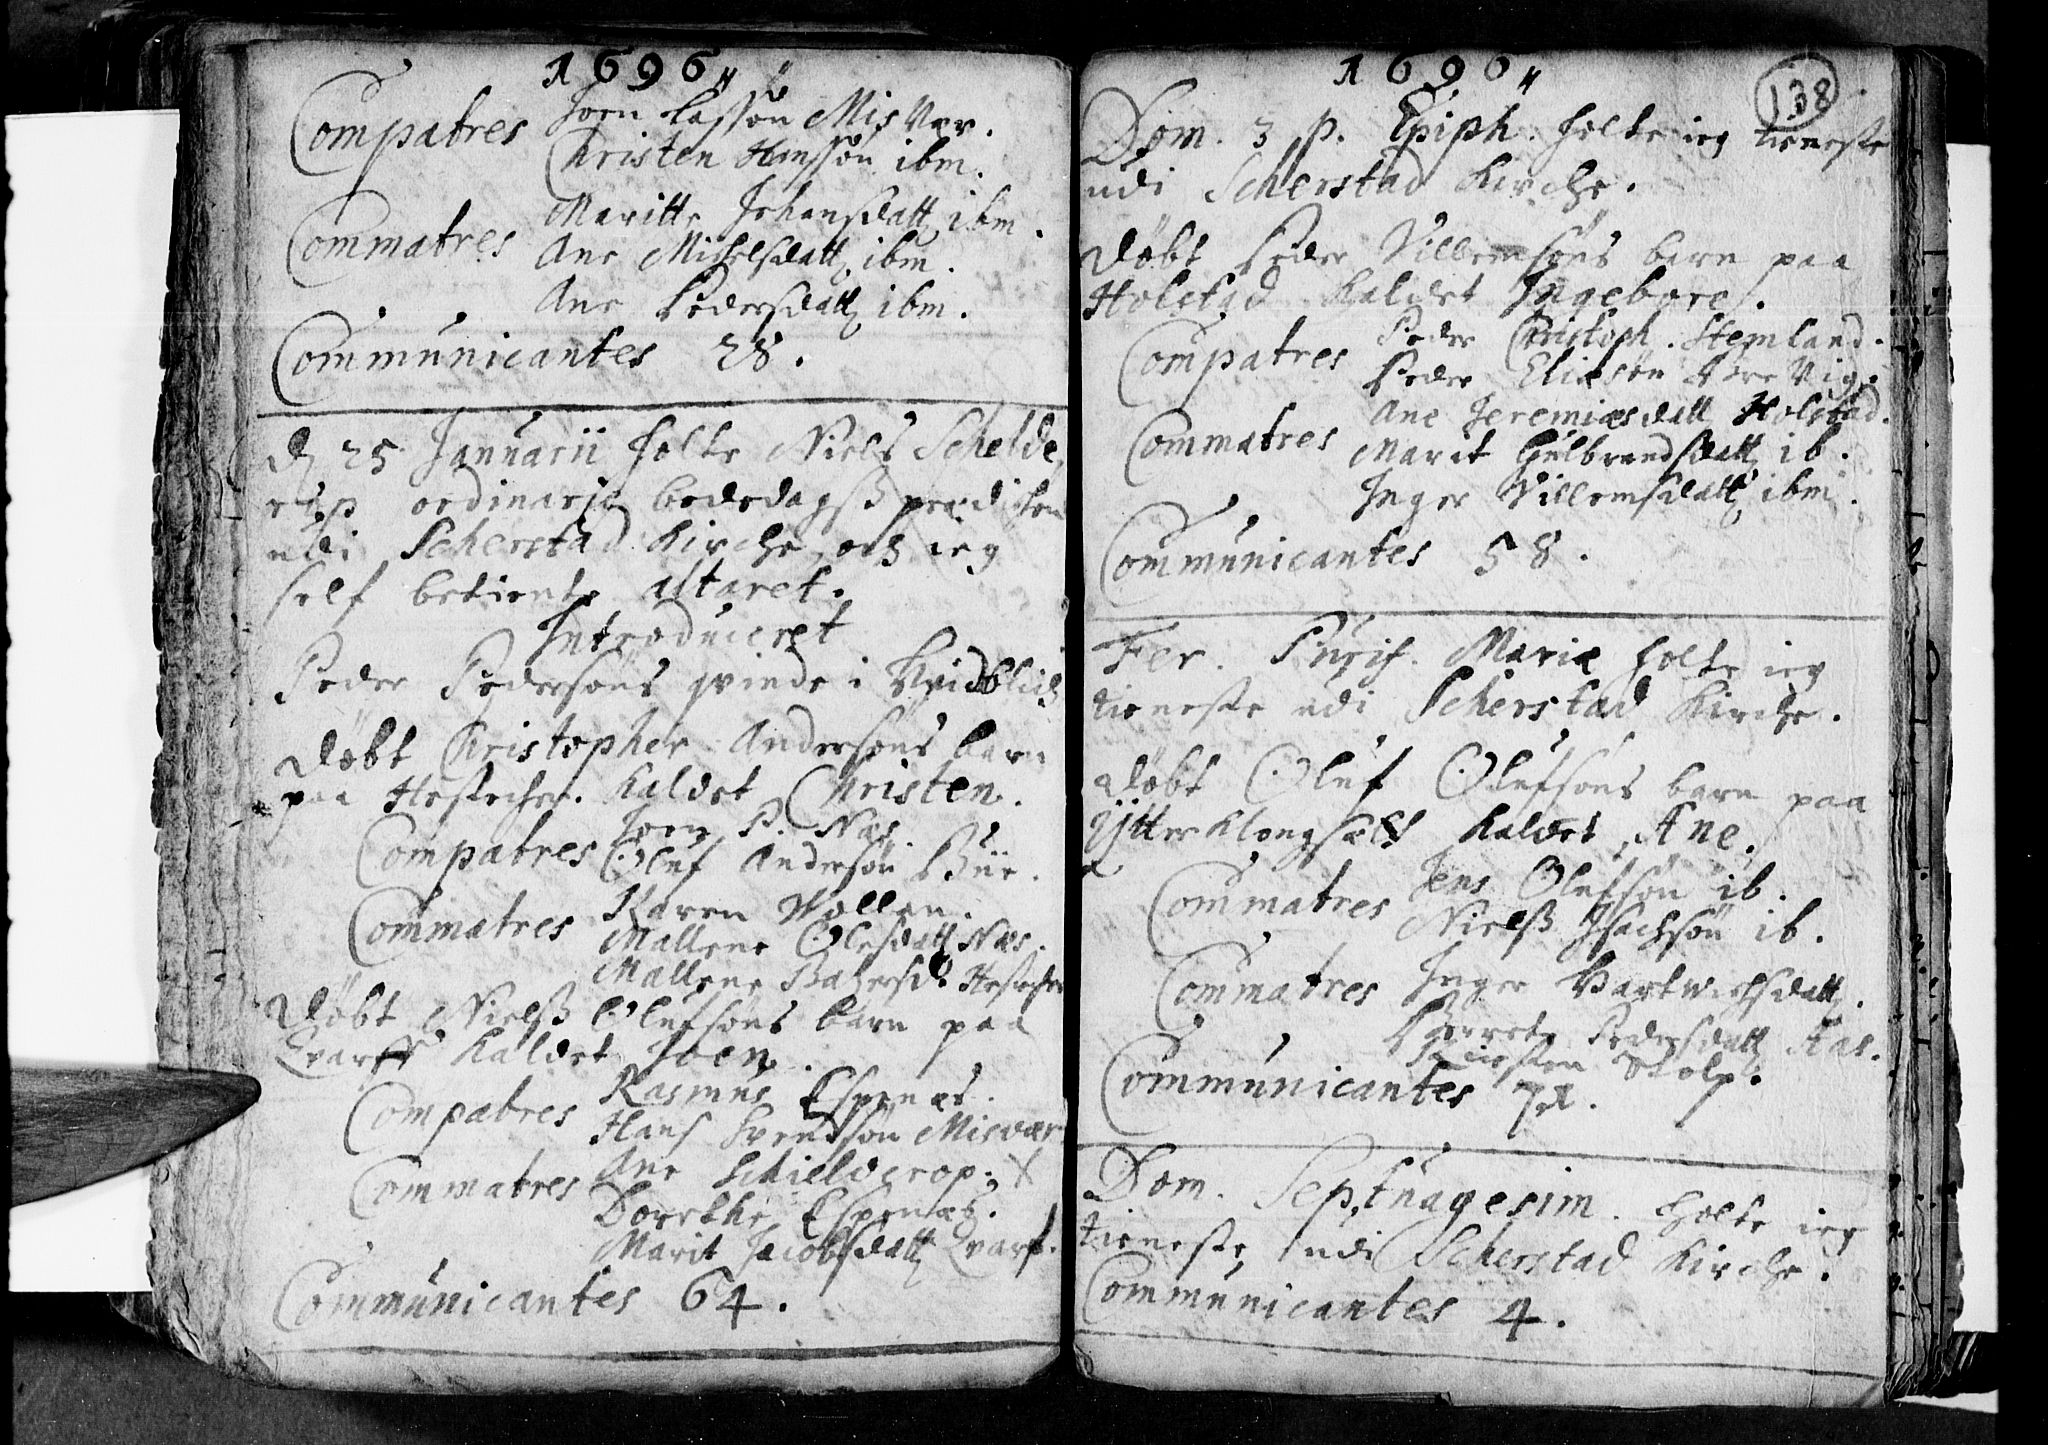 1696
Compatres Joen Lassøn Misvær.
Christen Hanssøn ibm.
Commatres Maritte Johansdatt ibm.
Ane Michelsdatt ibm.
Ane Pedersdatt ibm.
Communicantes 28.
d 25 Januarii holte Niels Schelde
rup ordinarje bededagsß prædichen
udi Scherstad Kirche, och ieg
self betiente altaret.
Introduceret
Peder Pedersøns qvinde i
Døbt Christopher Andersøns barn
paa Kaldet Christen.
Compatres Joen P. Næs
Oluf Andersøn
Commatres Karen Vollen.
Mallene Olesdatt Næs.
Mallene
Døbt Nielß Olufsøns barn paa
Qvarff Kaldet Joen.
Compatres Rasmus Espenæs.
Hans Svendsøn Misvær
Commatres Ane Schielderop.
Dorethe Espenæs.
Marit Jacobsdatt Qvarf.
Communicantes 64.
1696
138
Dom. 3 p. Epiph. holte ieg tieneste
udi Scherstad Kirche.
Døbt Peder Villemsøns barn paa
Holstad Kaldet Ingebore.
Compatres Peder Christoph. Stemland.
Peder Eliæsøn
Commatres Ane Jeremiæsdatt Holstad.
Marit Gulbrandsdatt ib.
Inger Villemsdatt ibm.
Communicantes 58.
Fer. Purif. Mariæ holte ieg
tieneste udi Scherstad Kirche.
Døbt Oluf Olufsøns barn paa
Ytter Klongsæt Kaldet Ane.
Commatres Jens Olufsøn ib.
Nielß Isachsøn ib.
Commatres Inger Hartwichsdatt.
Berrete Pedersdatt Aas.
Kirsten Stolp.
Communicantes
Dom. Septuagesim. holte ieg
tieneste udi Scherstad Kirche.
Communicantes 4.